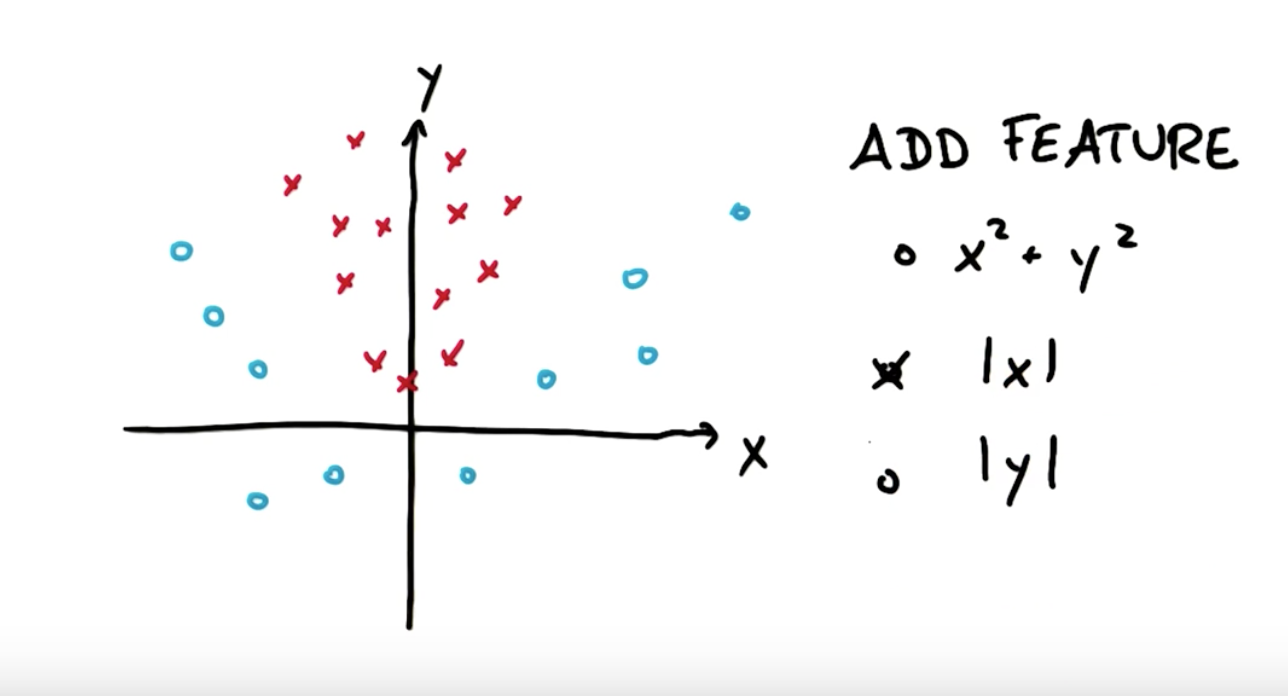 Y
ADD FEATURE
x² + y²
|x|
X
|y|